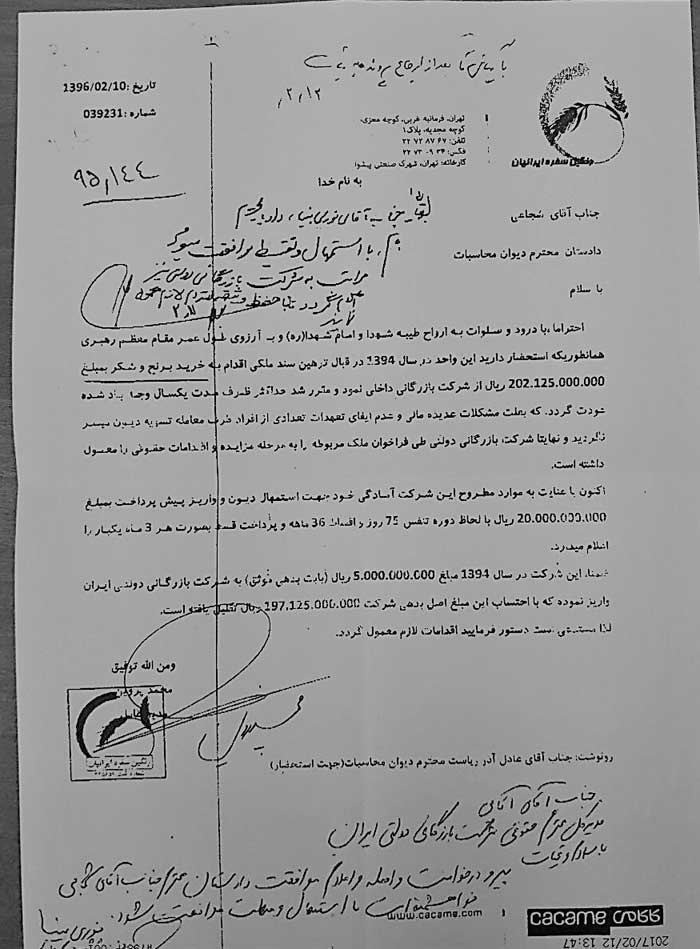 تاریخ :1396/02/10
شماره :039231
۹۵٫۱۴۴
۲٫۱۲
تهران، فرمانیه غربی، کوچه معزی،
کوچه مجدیه، پلاک۱
تلفن: ۶۷ ۸۷ ۷۲ ۲۲
فکس: ۳۴ ۰۹ ۷۳ ۲۲
کارخانه: تهران، شهرک صنعتی پیشوا
رنگین سفره ایرانیان
به نام خدا
جناب آقای شجاعی
دادستان محترم دیوان محاسبات
با سلام
آقای نوری نیا، دادیار محترم
با استمهال و تقسیط موافقت میگردد
مراتب به شرکت بازرگانی دولتی نیز
احتراما،با درود و سلوات به ارواح طیبه شهدا و امام شهدا(ره) و به آرزوی طول عمر مقام معظم رهبری
همانطوریکه استحضار دارید این واحد در سال 1394 در قبال ترهین سند ملکی اقدام به خرید برنج و شکر بمبلغ
202.125.000.000 ریال از شرکت بازرگانی داخلی نمود و مقرر شد حداکثر ظرف مدت یکسال وجه یاد شده
عودت گردد. که بعلت مشکلات عدیده مالی و عدم ایفای تعهدات تعدادی از افراد طرف معامله تسویه دیون میسر
نگردید و نهایتا شرکت بازرگانی دولتی طی فراخوان ملک مربوطه را به مرحله مزایده و اقدامات حقوقی را معمول
داشته است.
اکنون با عنایت به موارد مطروح این شرکت آمادگی خود جهت استمهال دیون و واریز پیش پرداخت بمبلغ
20.000.000.000 ریال با لحاظ دوره تنفس 75 روز و اقساط 36 ماهه و پرداخت قسط بصورت هر 3 ماه یکبار را
اعلام میدارد.
ضمنا، این شرکت در سال 1394 مبلغ 5.000.000.000 ریال (بابت بدهی فوق) به شرکت بازرگانی دولتی ایران
واریز نموده که با احتساب این مبلغ اصل بدهی شرکت 197.125.000.000 ریال تقلیل یافته است.
لذا مستدعی است دستور فرمایید اقدامات لازم معمول گردد.
ومن الله توفیق
محمد پروین
مدیر عامل
رنگین سفره ایرانیان
رونوشت: جناب آقای عادل آذر ریاست محترم دیوان محاسبات(جهت استحضار)
جناب آقای آقایی
مدیرکل محترم حقوقی شرکت بازرگانی دولتی ایران
با سلام و تحیات
پیرو درخواست واصله و اعلام موافقت دادستان محترم جناب آقای شجاعی
خواهشمند است با استمهال و مهلت موافقت شود.
نوری نیا
www.cacame.com
cacame
2017/02/12 13:47